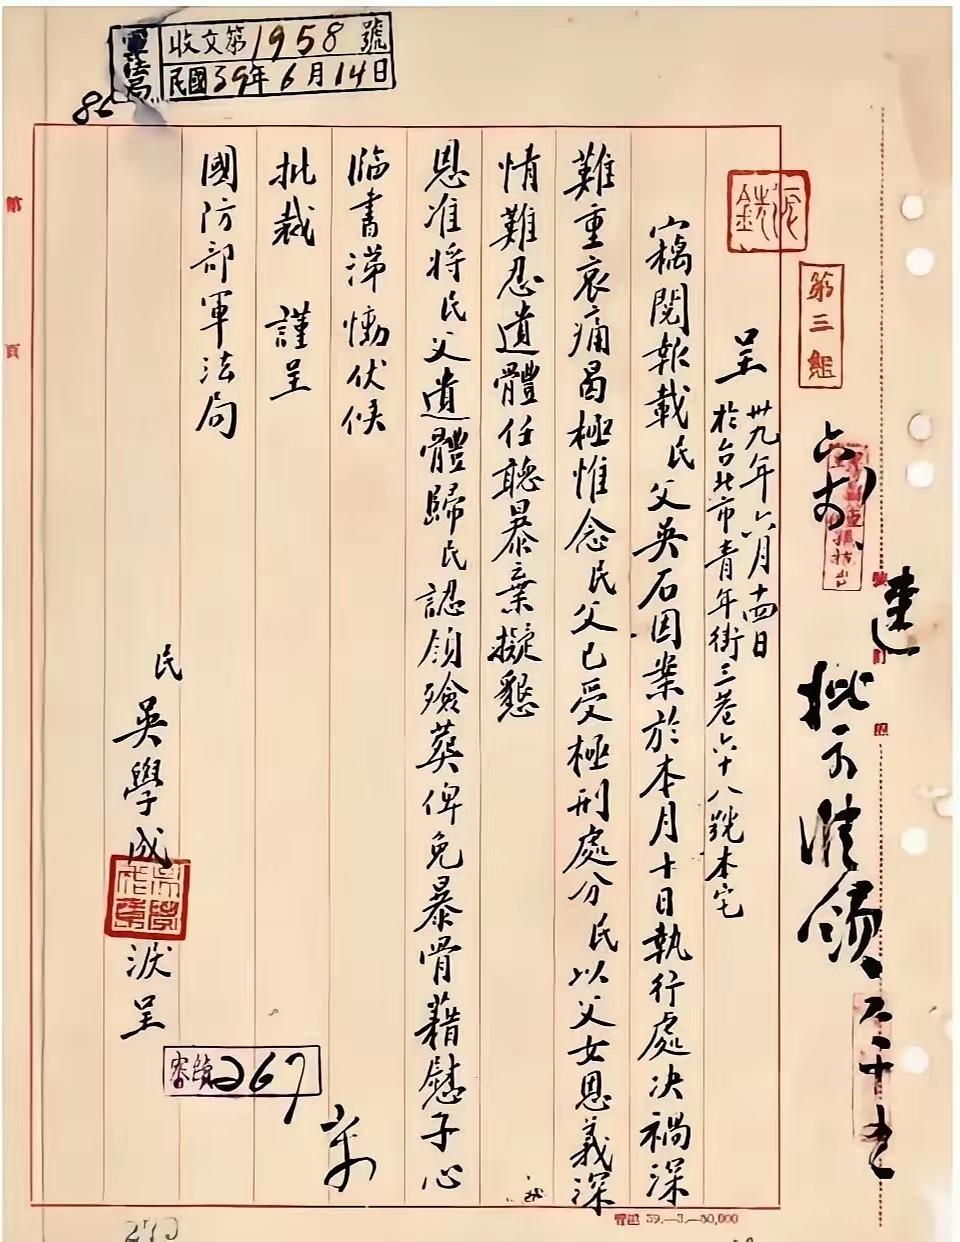 軍法局
收文第1958號
民國39年6月14日
第三組
呈 卅九年六月十四日
於台北市青年街三巷六十八號本宅
竊閱報載民父吳石因案於本月十日執行處决禍深
難重哀痛曷極惟念民父已受極刑處分民以父女恩義深
情難忍遺體任聽暴棄擬懇
恩准將民父遺體歸民認領殮葬俾免暴骨藉慰子心
臨書涕慟伏候
批裁 謹呈
國防部軍法局
民吳學成 淚呈
267
第 頁
39.—3.—50,000
270